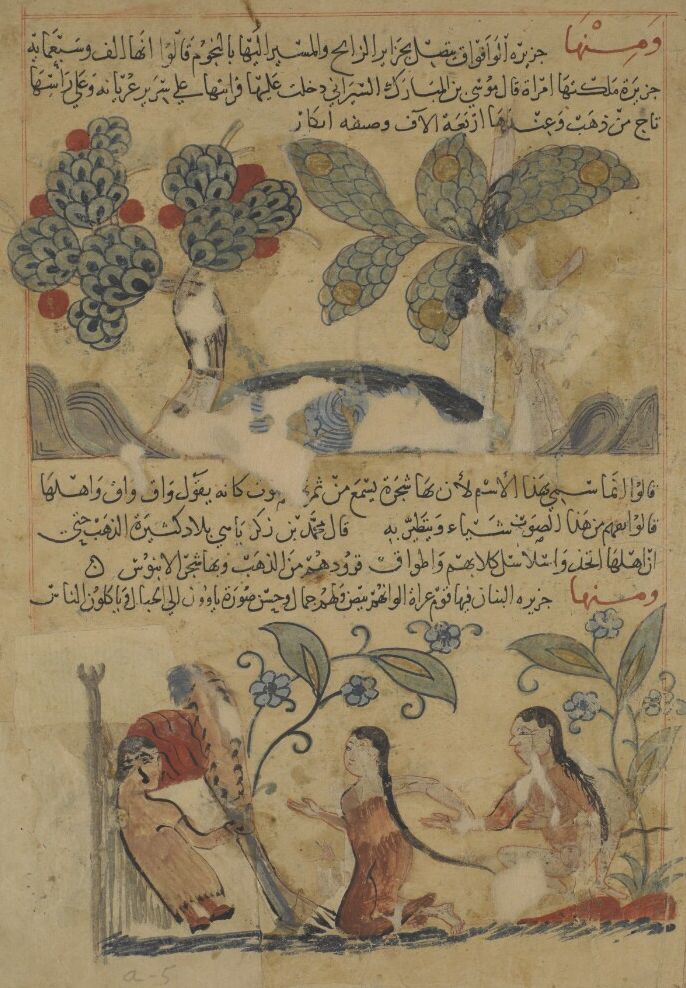 ومنها جزيره الواقواق يتصل بجزاير الزابح والمسير اليها بالنجوم قالوا انها الف وسبعمايه
جزيرة ملكتها امراة قال موسى بن المبارك السيرافي دخلت عليها فرايتها على سرير عريانه وعلى راسها
تاج من ذهب وعندها اربعة الاف وصيفه ابكار
قالوا انما سمي بهذا الاسم لأن بها شجرة يسمع من ثمر كانه يقول واق واق واهلها
قالوا يفهم من هذا الصوت شياء ويتطير به قال محمد بن زكريا هي بلاد كثيرة الذهب حتى
ان اهلها سلاسل كلابهم واطواق قرودهم من الذهب وبها شجر الابنوس
ومنها جزيره البنان فيها قوم عراة الوانهم بيض ولهم جمال وحسن صورة ياوون الى الجبال وياكلون الناس
a-5